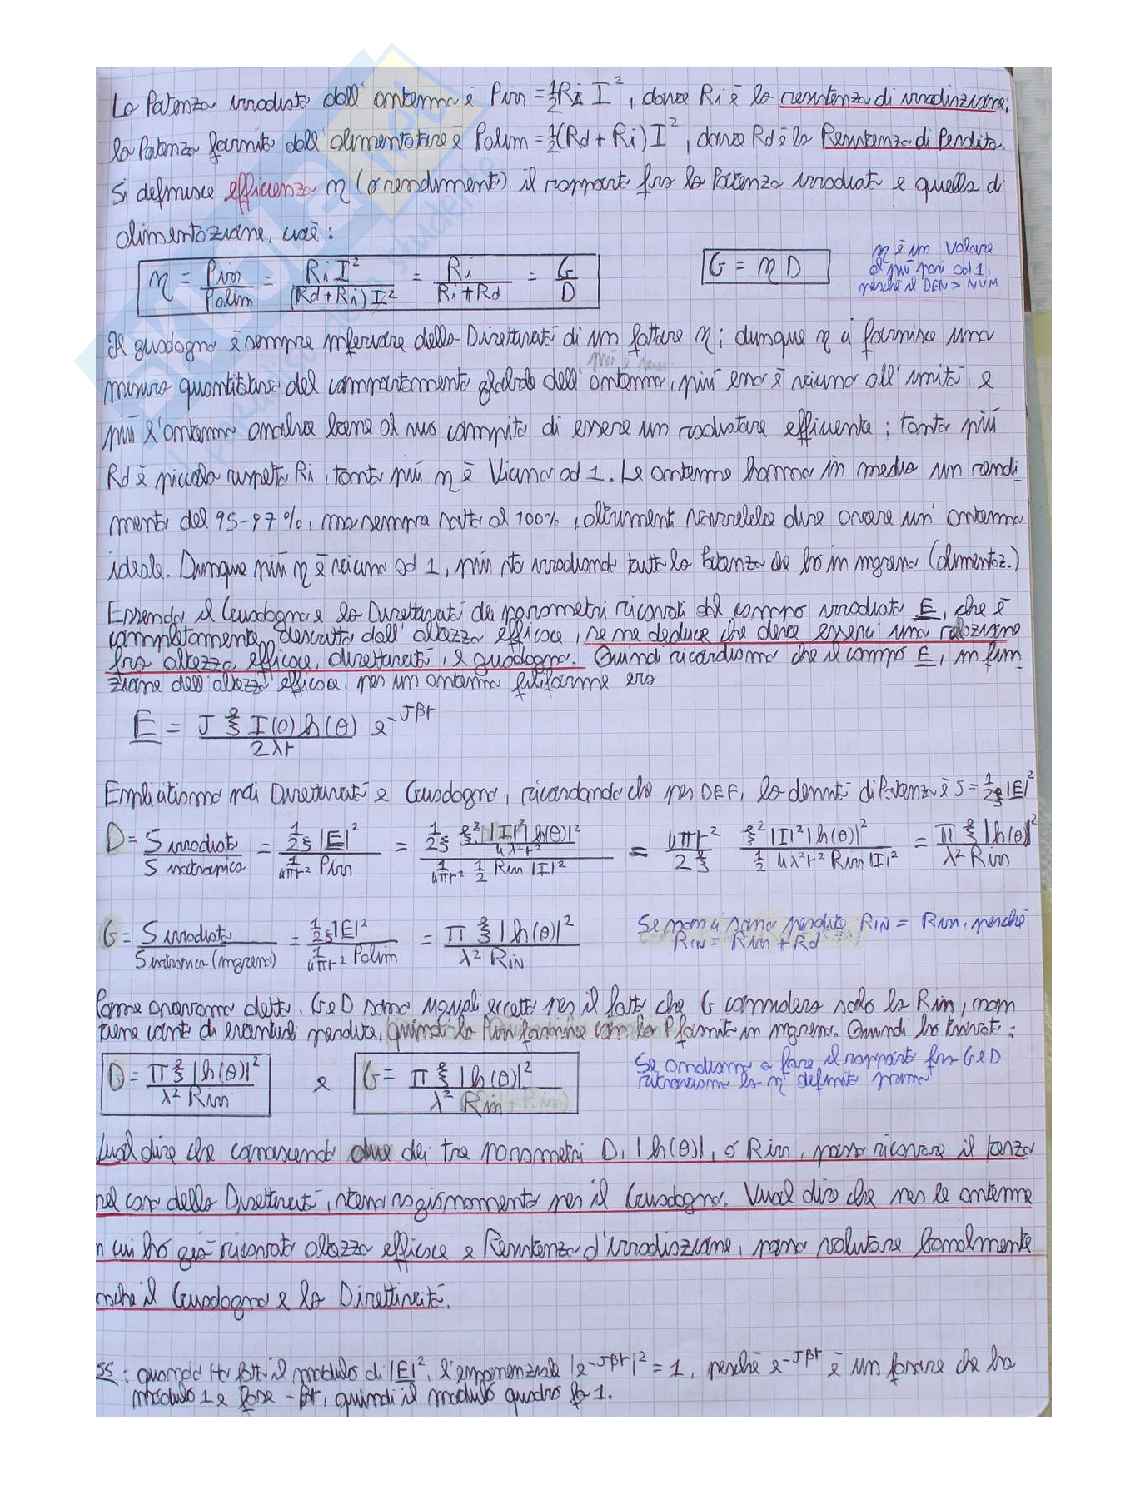 La Potenza irradiata dall'antenna è Pirr = ½ Ri I², dove Ri è la resistenza di irradiazione,
la Potenza fornita dall'alimentatore è Palim = ½(Rd + Ri) I², dove Rd è la Resistenza di Perdita.
Si definisce efficienza η (o rendimento) il rapporto fra la Potenza irradiata e quella di
alimentazione, cioè:
η = Pirr / Palim = Ri I² / (Rd + Ri) I² = Ri / Ri + Rd = G / D
G = η D
η è un valore
al più pari ad 1
perché il DEN > NUM
Il guadagno è sempre inferiore della Direttività di un fattore η; dunque η ci fornisce una
misura quantitativa del comportamento globale dell'antenna, più essa è vicina all'unità e
più l'antenna analizza bene il suo compito di essere un radiatore efficiente; tanto più
Rd è piccola rispetto Ri, tanto più η è vicino ad 1. Le antenne hanno in media un rendi
mento del 95-97%, ma sempre sotto al 100%, altrimenti vorrebbe dire avere un'antenna
ideale. Dunque più η è vicino ad 1, più sto irradiando tutta la Potenza che ho in ingresso (alimentaz.)
Essendo il Guadagno e la Direttività dei parametri ricavati dal campo irradiato E, che è
completamente descritto dall'altezza efficace, se ne deduce che deve esserci una relazione
fra altezza efficace, direttività, e guadagno. Quindi ricordiamo che il campo E, in fun
zione dell'altezza efficace per un'antenna filiforme era
E = J ξ I(0) h(θ) / 2λr e^-Jβr
Esplicitiamo poi Direttività e Guadagno, ricordando che per DEF, la densità di Potenza è S = 1/2ξ |E|²
D = S irradiata / S isotropica = 1/2ξ |E|² / 1/4πr² Pirr = 1/2ξ ξ² |I|² |h(θ)|² / 4λ²r² / 1/4πr² 1/2 Rirr |I|² = 4πr² / 2ξ ξ² |I|² |h(θ)|² / ½ 4λ²r² Rirr |I|² = π ξ |h(θ)|² / λ² Rirr
G = S irradiata / S isotropica (ingresso) = 1/2ξ |E|² / 1/4πr² Palim = π ξ |h(θ)|² / λ² RIN
Se non ci sono perdite RIN = Rirr, perché
RIN = Rirr + Rd
Come avevamo detto, G e D sono uguali eccetto per il fatto che G considera solo la Rin, non
tiene conto di eventuali perdite, quindi la Pirr fornisce con la P fornita in ingresso. Quindi ho trovato:
D = π ξ |h(θ)|² / λ² Rirr e G = π ξ |h(θ)|² / λ² Rin
Se andiamo a fare il rapporto fra G e D
ritroviamo la η definita prima
Vuol dire che conoscendo due dei tre parametri D, |h(θ)|, o Rirr, posso ricavare il terzo
nel caso della Direttività, stesso ragionamento per il Guadagno. Vuol dire che per le antenne
n cui ho già ricavato altezza efficace e Resistenza d'irradiazione, posso valutare banalmente
nche il Guadagno e la Direttività.
SS: quando si fa il modulo di |E|², l'esponenziale |e^-Jβr|² = 1, perché e^-Jβr è un fasore che ha
modulo 1 e fase -βr, quindi il modulo quadro fa 1.